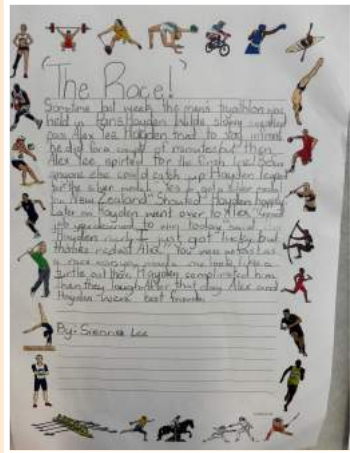 "The Race!"
Sometime last week the men's triathlon was
held in Paris Hayden Wilde slowly
pass Alex Lee Hayden tried to stay infront
he did for a couple of minutes but then
Alex Lee sprinted for the finish line before
anyone else could catch up Hayden
for the silver medal. "Yes I got a silver medal
for New Zealand" Shouted Hayden happily
Later on Hayden went over to Alex
job you deserved to win today" said
Hayden "I just got lucky but
thanks" Alex "You were as fast as
a race car
turtle out there" Hayden him
then they after that day Alex and
Hayden were best friends
By: Sienna Lee